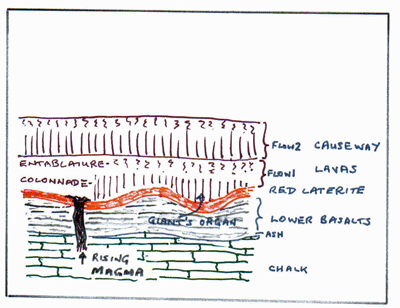 FLOW 2 CAUSEWAY
ENTABLATURE-
FLOW 1 LAVAS
COLONNADE-
RED LATERITE
GIANT'S ORGAN
LOWER BASALTS
ASH
RISING
MAGMA
CHALK